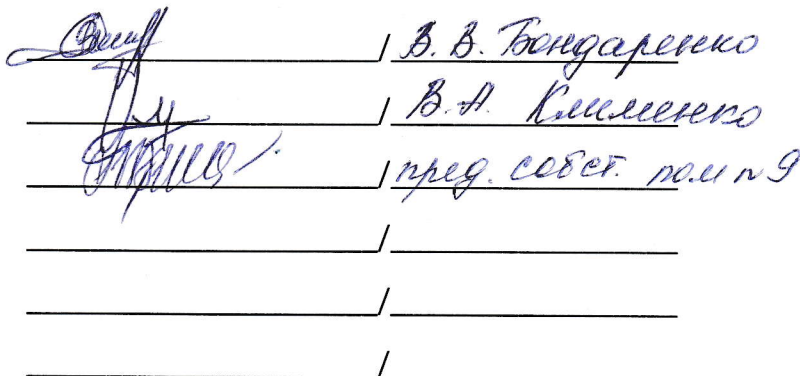 / В. В. Бондаренко
/ В. А. Клименко
/ пред. собст. пом п 9
/
/
/